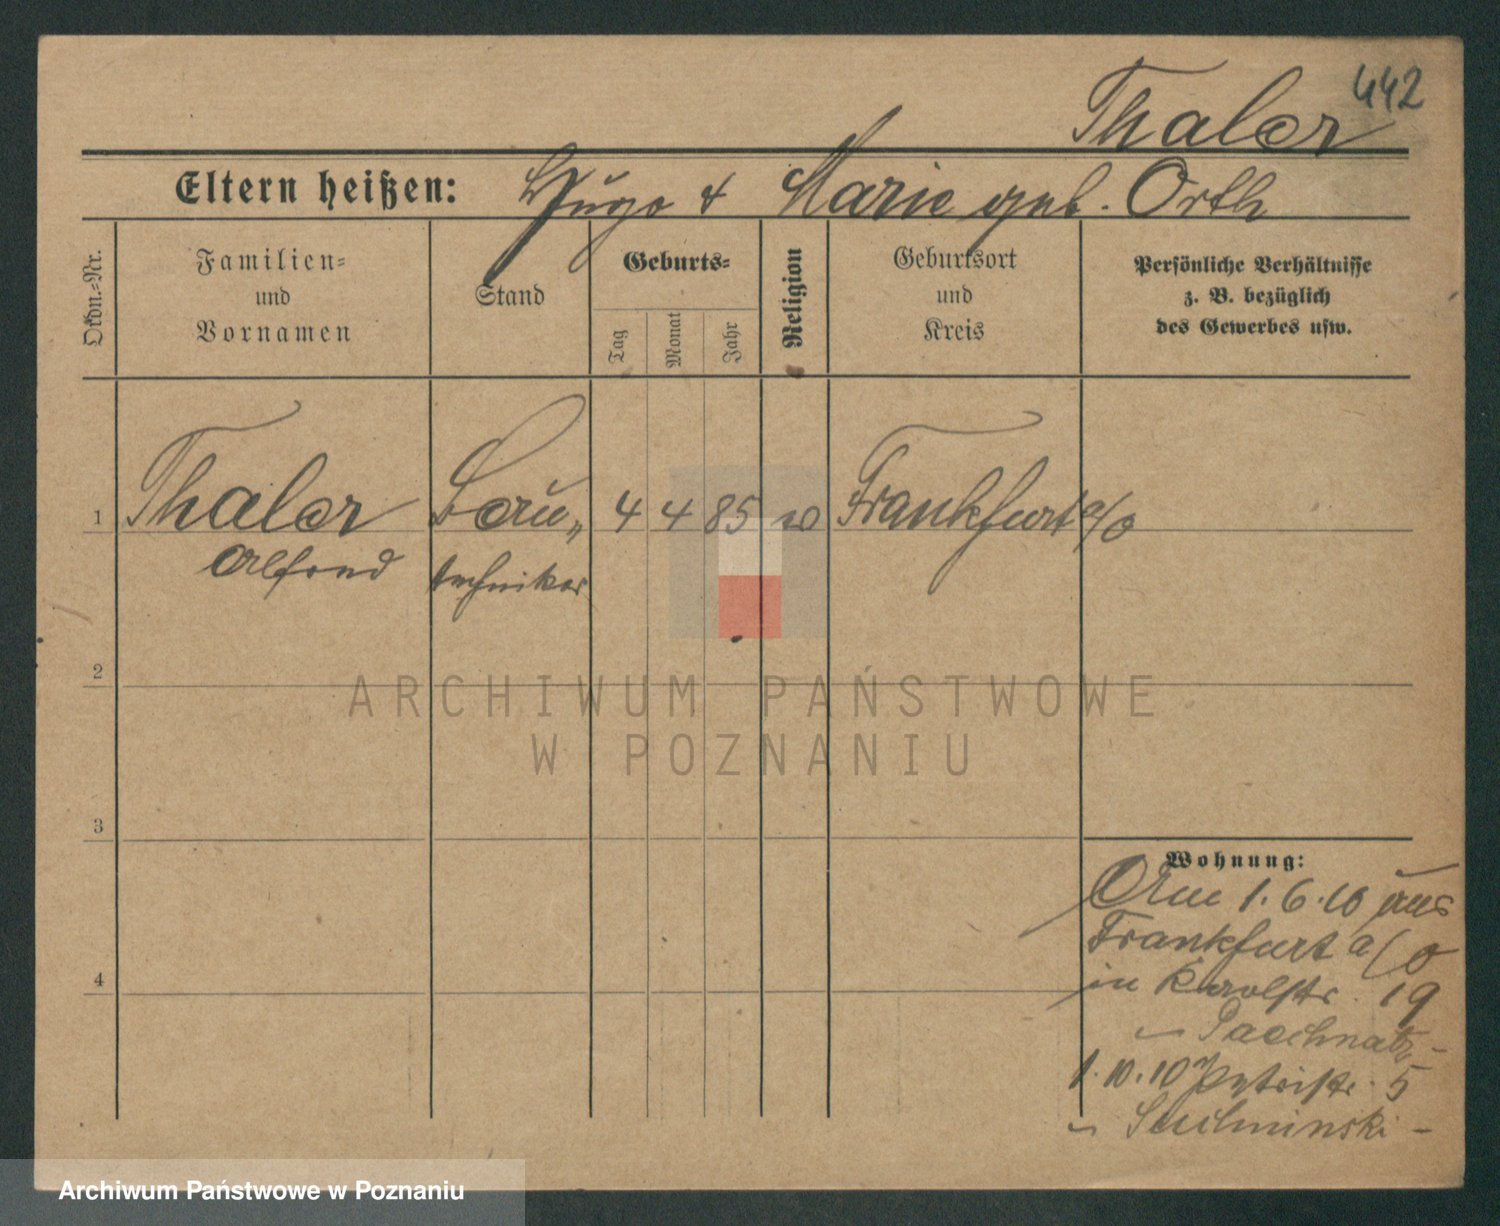 442
Thaler
Eltern heißen: Hugo & Marie geb. Orth
Ordn.-Nr.
Familien-
und
Vornamen
Stand
Geburts-
Tag
Monat
Jahr
Religion
Geburtsort
und
Kreis
Persönliche Verhältnisse
z. B. bezüglich
des Gewerbes usw.
1 Thaler Bau- 4 4 85 Frankfurt a/O
Alfred techniker
2
3
4
Wohnung:
Am 1.6.10 aus
Frankfurt a/O
in Karolstr. 19
1.10.10 Petristr. 5
ARCHIWUM PAŃSTWOWE
W POZNANIU
Archiwum Państwowe w Poznaniu